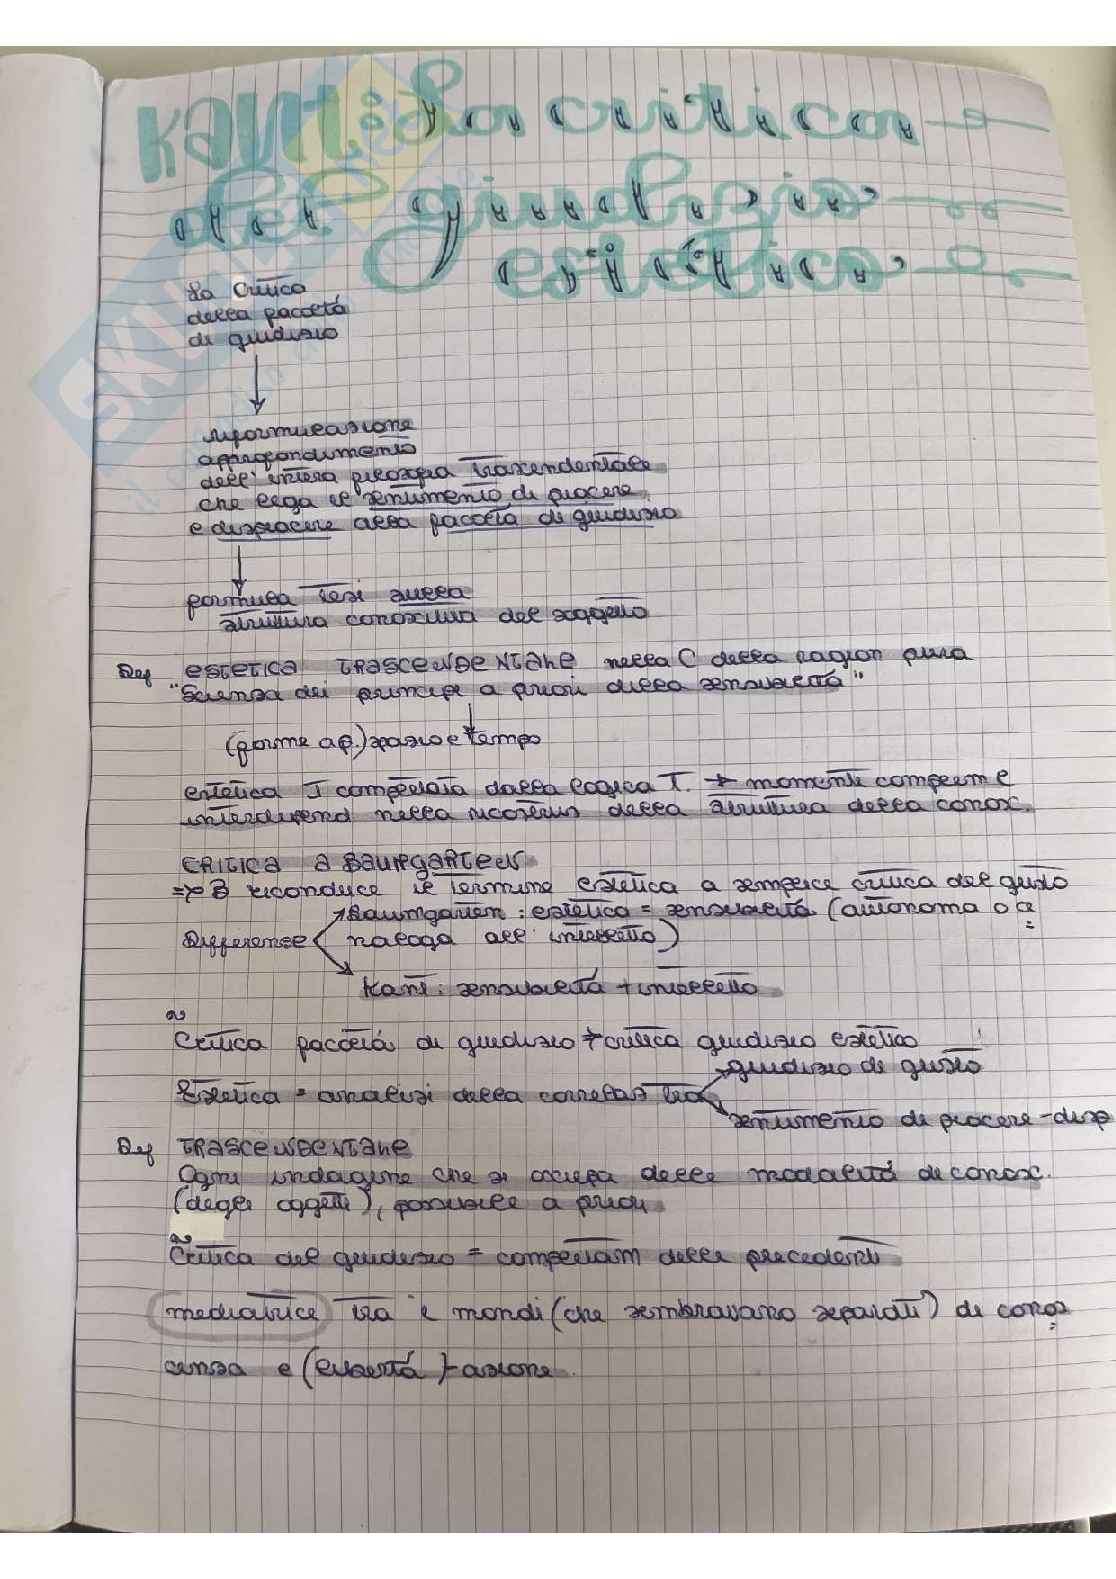 Kant: La critica
del giudizio
estetico
La Critica
della facoltà
di giudizio
riformulazione
approfondimento
dell'intera filosofia trascendentale
che lega il sentimento di piacere
e dispiacere alla facoltà di giudizio
formula tesi sulla
struttura conoscitiva del soggetto
Def ESTETICA TRASCENDENTALE nella C della ragion pura
"Scienza dei principi a priori della sensibilità"
(forme a p.) spazio e tempo
estetica T completata dalla logica T. → momenti complem e
interdipend nella ricostruz della struttura della conosc.
CRITICA A BAUMGARTEN
=> B riconduce il termine estetica a semplice critica del gusto
Baumgarten: estetica = sensibilità (autonoma o a
Differenze naloga all'intelletto)
Kant: sensibilità + intelletto
Critica facoltà di giudizio ≠ critica giudizio estetico
giudizio di gusto
Estetica = analisi della correlaz tra
sentimento di piacere-disp
Def TRASCENDENTALE
Ogni indagine che si occupa delle modalità di conosc.
(degli oggetti), possibile a priori
Critica del giudizio = completam delle precedenti
mediatrice tra i mondi (che sembravano separati) di conos
cenza e (libertà)-azione.